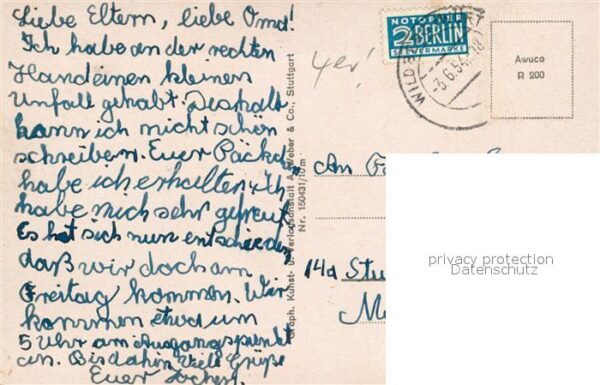 Liebe Eltern, liebe Oma!
Ich habe an der rechten
Hand einen kleinen
Unfall gehabt. Deshalb
kann ich nicht schön
schreiben. Euer Päckchen
habe ich erhalten. Ich
habe mich sehr gefreut.
Es hat sich nun entschieden
daß wir doch am
Freitag kommen. Wir
kommen etwa um
5 Uhr am Ausgangspunkt
an. Bis dahin viele Grüße
Euer Jochen.
Graph. Kunst- u. Verlagsanstalt A. Weber & Co., Stuttgart
Nr. 150431/10m
4er!
NOTOPFER
2 BERLIN
STEUERMARKE
WILDB
-3.6.54
Awuco
R 200
An
14a Stu
privacy protection
Datenschutz